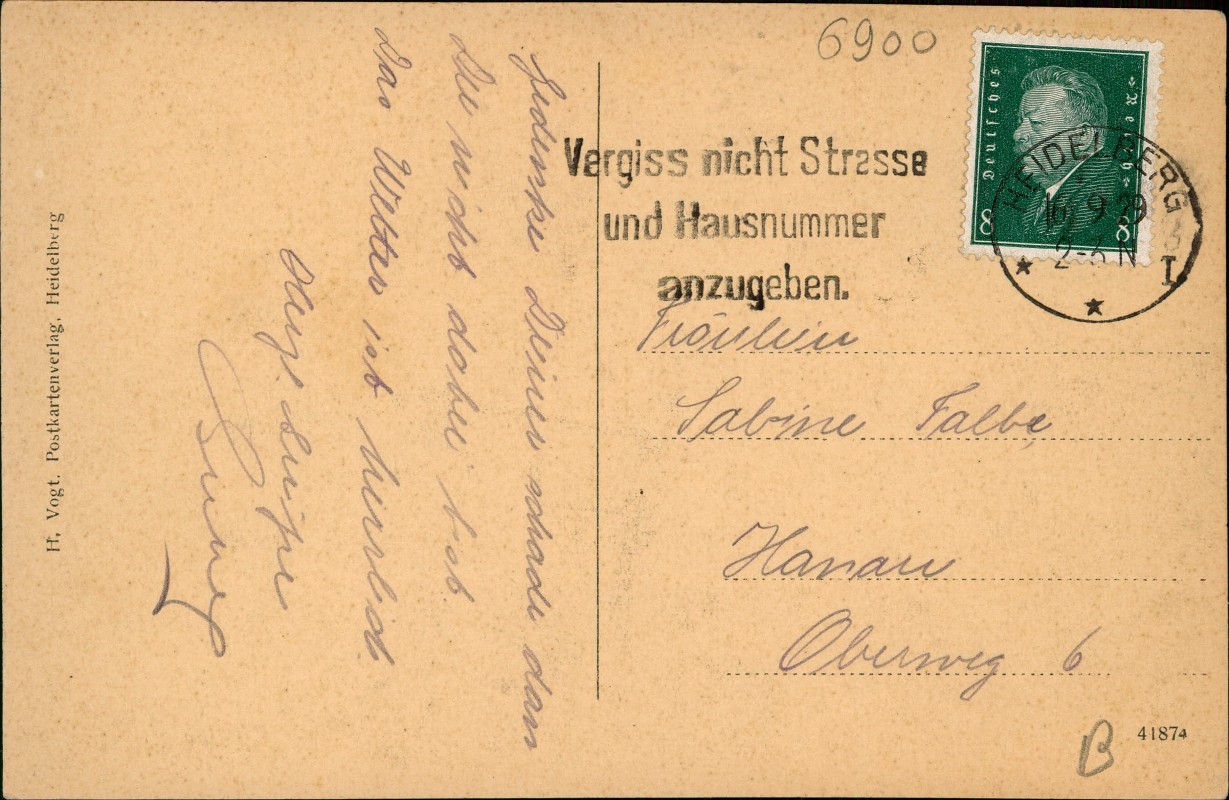 6900
Deutsches Reich
8 8
HEIDELBERG
16 9 29
2-3 N
I
Vergiss nicht Strasse
und Hausnummer
anzugeben.
Gedenke Deiner schade dass
Du nicht dabei bist.
Das Wetter ist herrlich
Fräulein
Sabine Falbe
Hanau
Oberweg 6
H. Vogt. Postkartenverlag, Heidelberg
41874
B